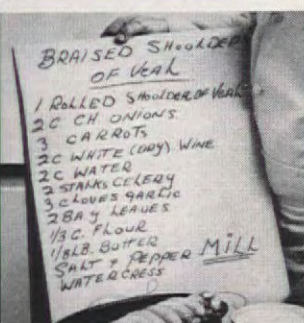 BRAISED SHOULDER
OF VEAL
1 ROLLED SHOULDER OF VEAL
2C CH. ONIONS
3 CARROTS
2C WHITE (DRY) WINE
2C WATER
2 STALKS CELERY
3 CLOVES GARLIC
2 BAY LEAVES
1/3 C. FLOUR
1/8 LB. BUTTER
SALT + PEPPER MILL
WATERCRESS